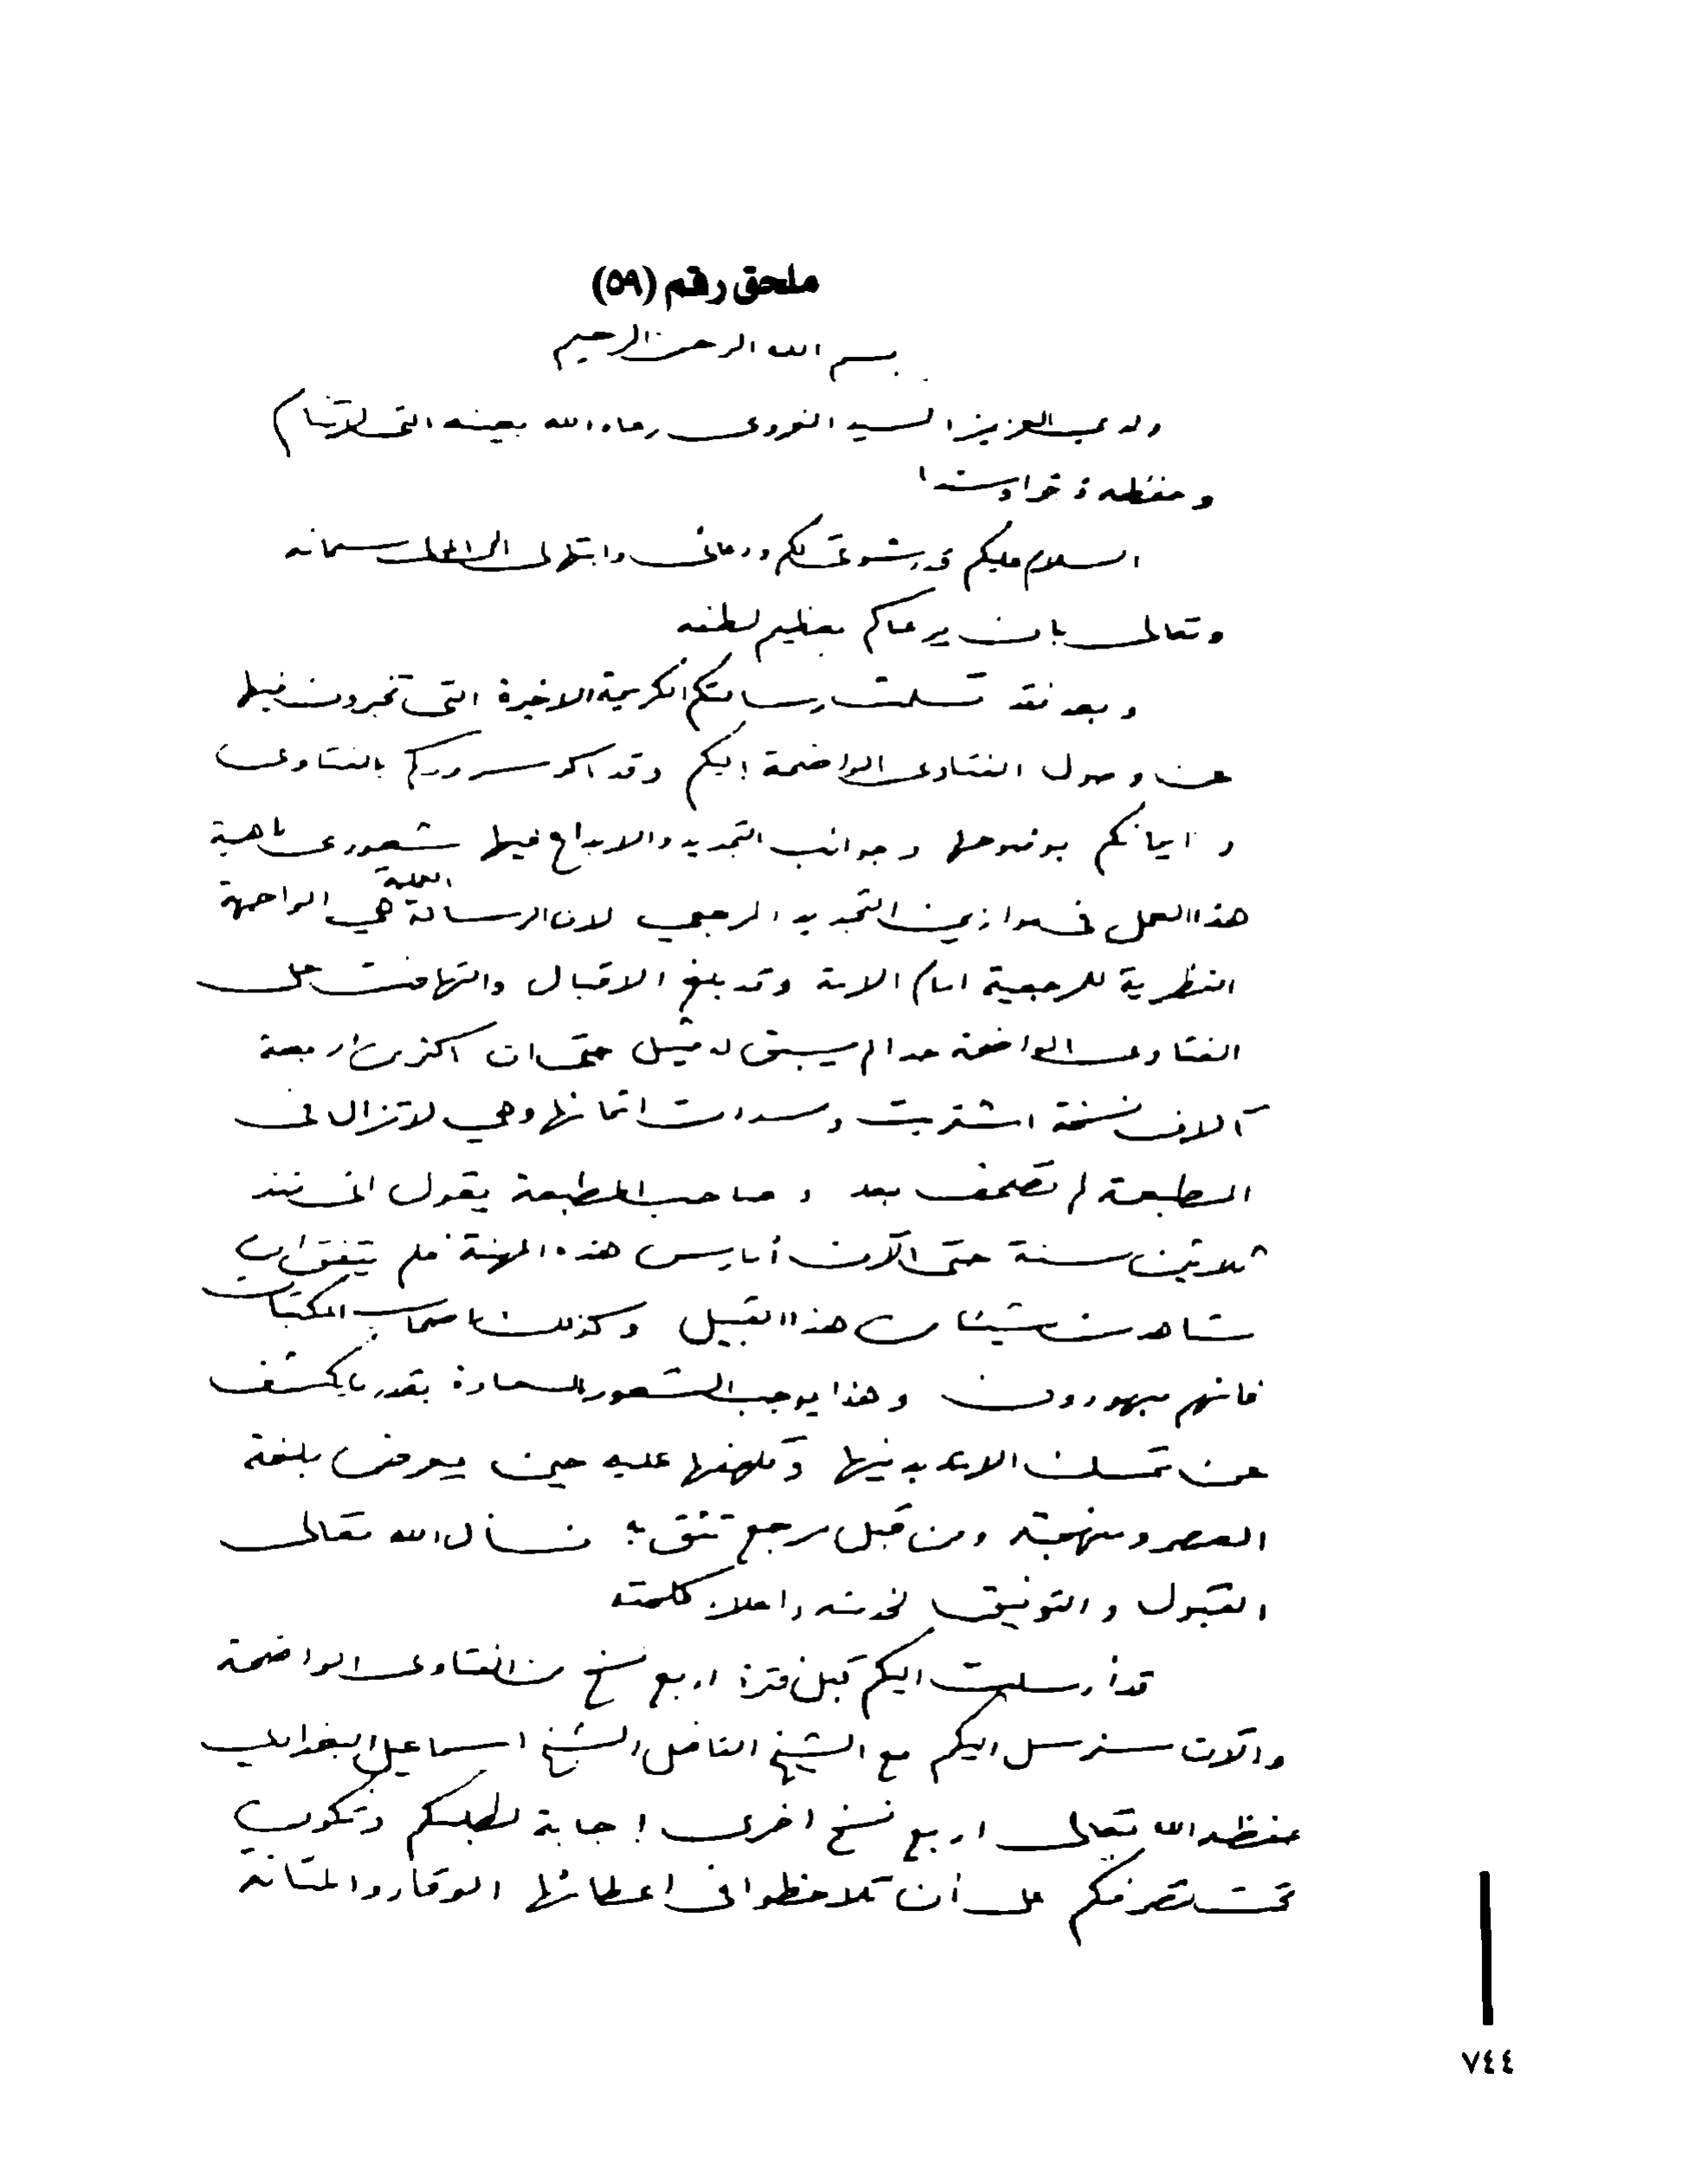 ملحق رقم (٥٩)
بسم الله الرحمن الرحيم
ولدي العزيز السيد الغروي رعاه الله بعينه التي لا تنام
وحفظه ذخرا وسندا
السلام عليكم قدر شوقي لكم ودعائي وابتهالي الى المولى سبحانه
وتعالى بان يرعاكم بعظيم لطفه
وبعد فقد تسلمت رسالتكم الكريمة الاخيرة التي تخبرون فيها
عن وصول الفتاوى الواضحة إليكم وقد اكد سروركم بالفتاوى
وايمانكم بوضوحها وجوانب التجديد والابداع فيها شعوري باهمية
هذا العمل في موازين التجديد المرجعي لان الرسالة العملية هي الواجهة
النظرية للمرجعية امام الامة وقد بلغ الاقبال والتهافت على
الفتاوى الواضحة حدا لم يسبق له مثيل حتى ان اكثر من اربعة
آلاف نسخة اشتريت وسددت اثمانها وهي لا تزال في
المطبعة لم تصحف بعد وصاحب المطبعة يقول اني منذ
ثلاثين سنة حتى الآن أمارس هذه المهنة فلم يتفق ان
شاهدت شيئا من هذا القبيل وكذلك اصحاب المكتبات
فانهم مبهورون وهذا يوجب الشعور بالسعادة بقدر ما يكشف
عن تمسك الامة بدينها وتلهفها عليه حين يعرض بلغة
العصر ومنهجته ومن قبل مرجع تثق به نسأل الله تعالى
القبول والتوفيق لخدمته واعلاء كلمته
قد أرسلت اليكم قبل فترة اربع نسخ من الفتاوى الواضحة
والآن سنرسل اليكم مع الشيخ الفاضل الشيخ اسماعيل
حفظه الله تعالى اربع نسخ اخرى إجابة لطلبكم وتكون
تحت تصرفكم على أن تلاحظوا في اعطائها الوقار والمتانة
٧٤٤